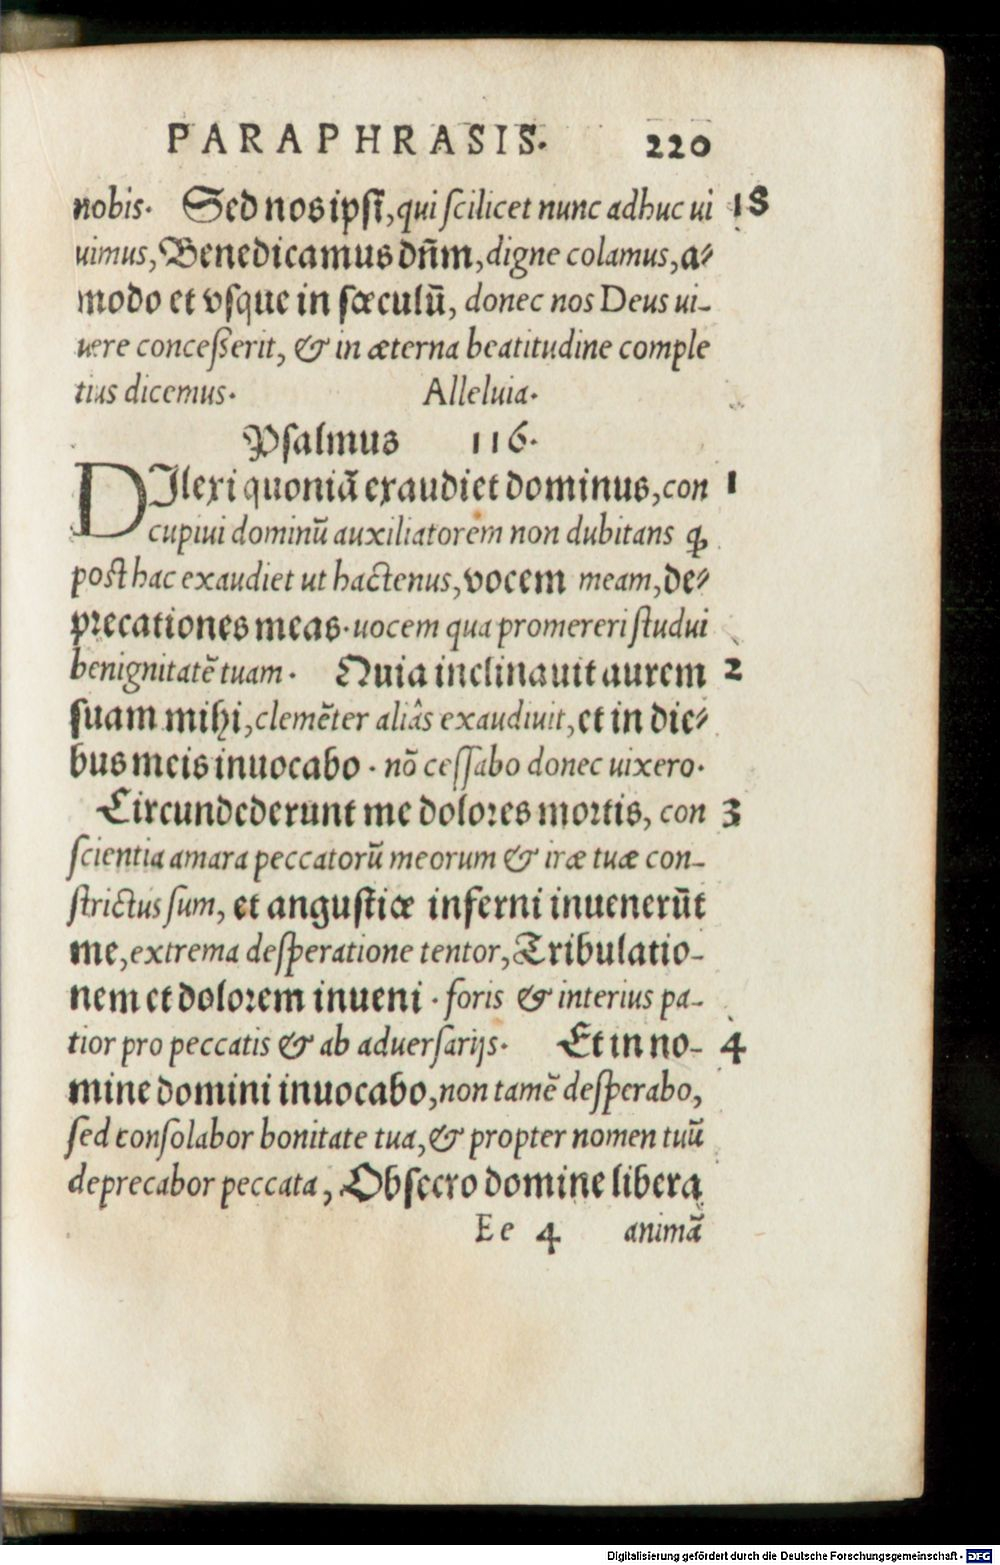 PARAPHRASIS. 220
nobis. Sed nos ipsi, qui ſcilicet nunc adhuc ui 18
uimus, Benedicamus dñm, digne colamus, a⸗
modo et vſque in ſæculū, donec nos Deus ui-
uere conceßerit, & in æterna beatitudine comple
tius dicemus. Alleluia.
Pſalmus 116.
DIlexi quoniã exaudiet dominus, con 1
cupiui dominũ auxiliatorem non dubitans ꝙ
poſt hac exaudiet ut hactenus, vocem meam, de⸗
precationes meas. uocem qua promereri ſtudui
benignitatẽ tuam. Quia inclinauit aurem 2
ſuam mihi, clemẽter aliâs exaudiuit, et in die⸗
bus meis inuocabo. nõ ceſſabo donec uixero.
Circundederunt me dolores mortis, con 3
ſcientia amara peccatorũ meorum & iræ tuæ con-
ſtrictus ſum, et anguſtiæ inferni inuenerũt
me, extrema deſperatione tentor, Tribulatio-
nem et dolorem inueni. foris & interius pa-
tior pro peccatis & ab aduerſarijs. Et in no- 4
mine domini inuocabo, non tamẽ deſperabo,
ſed conſolabor bonitate tua, & propter nomen tuũ
deprecabor peccata, Obſecro domine libera
Ee 4 animã
Digitalisierung gefördert durch die Deutsche Forschungsgemeinschaft - DFG